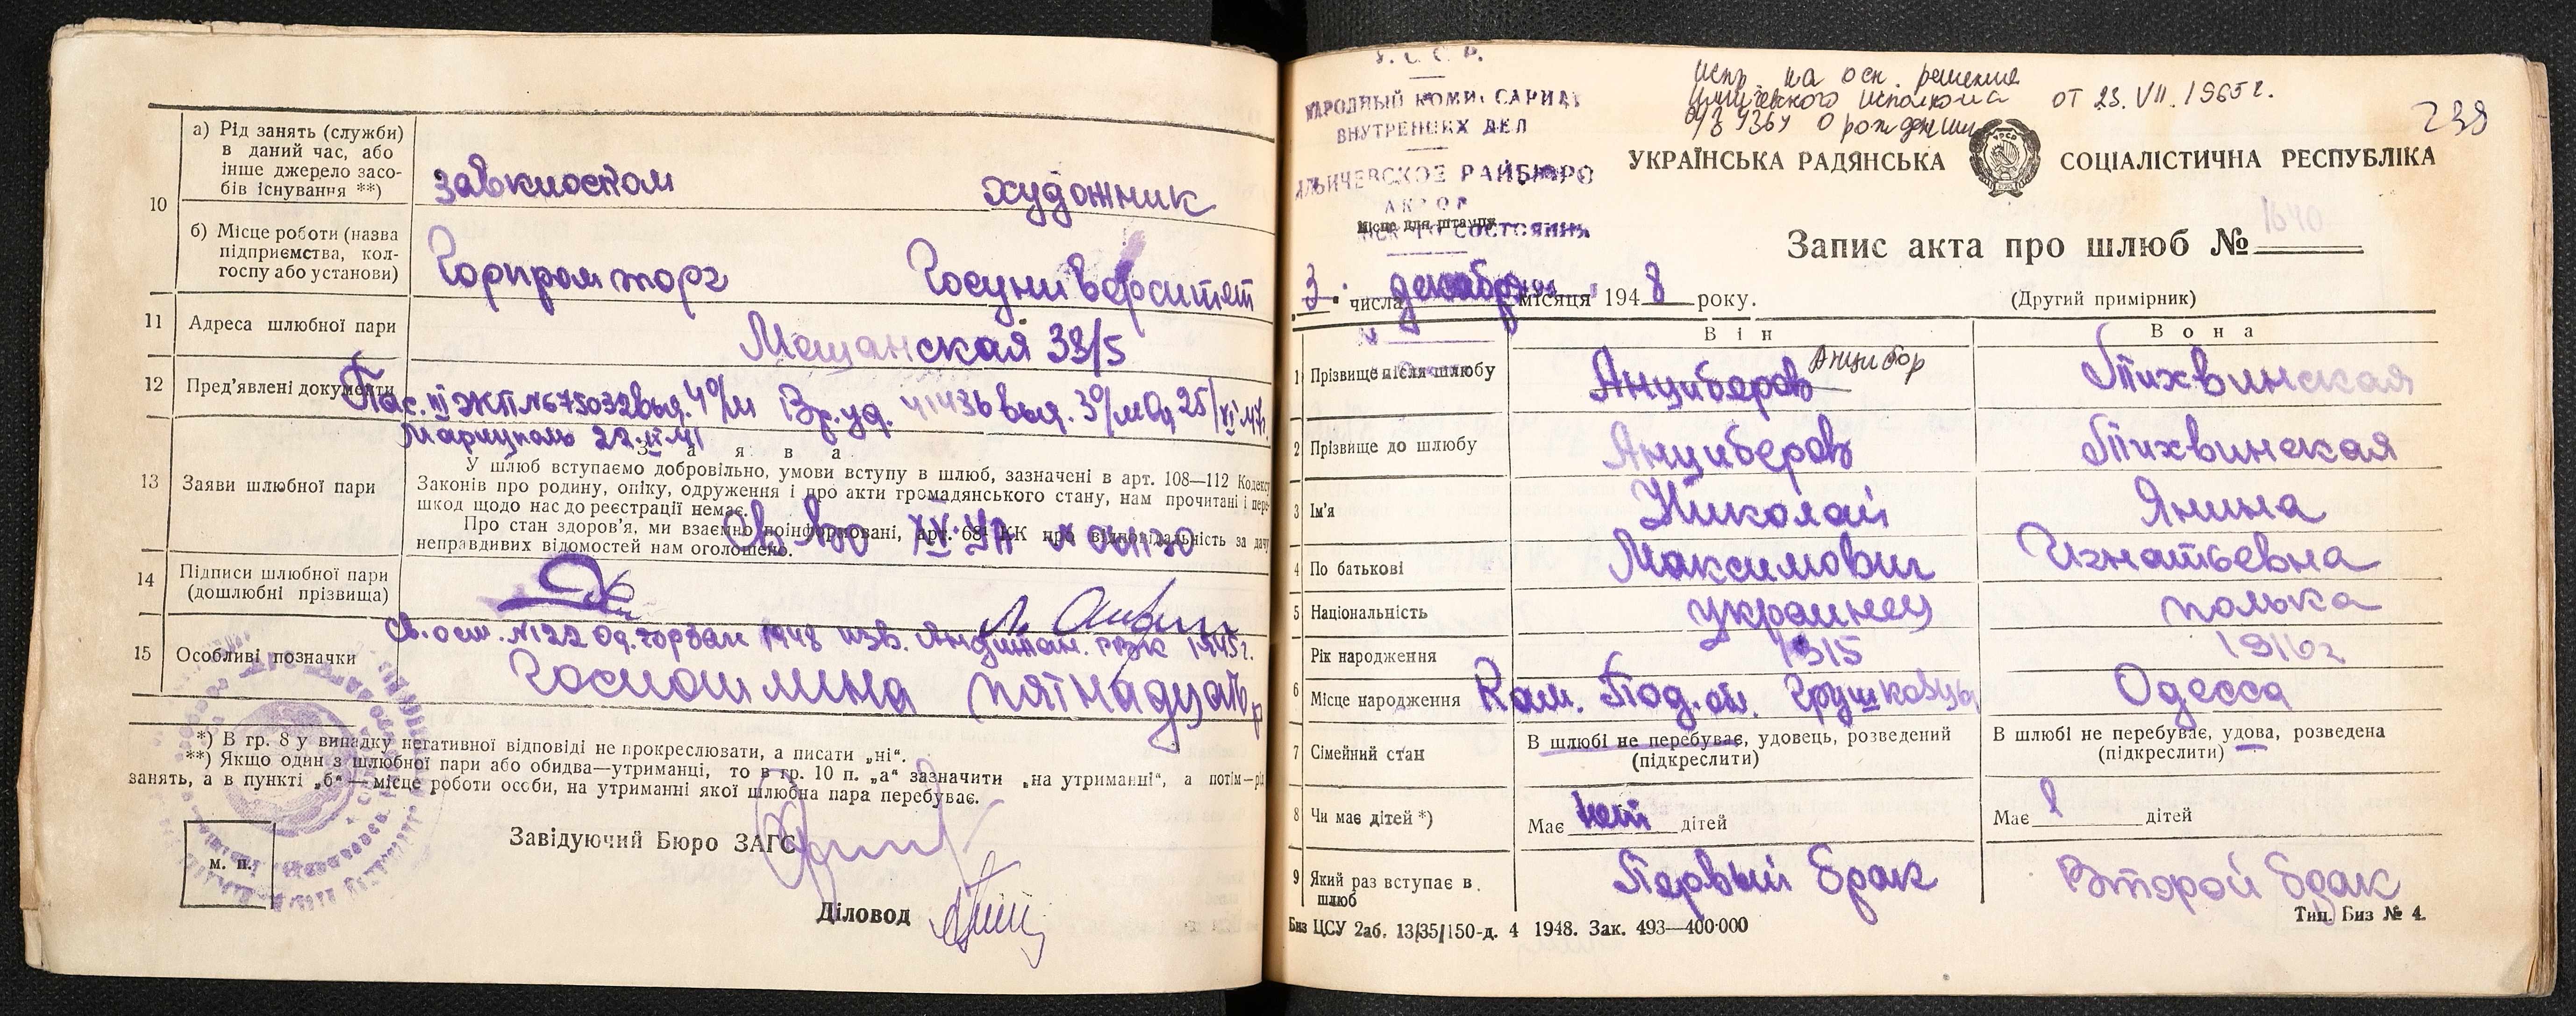 а) Рід занять (служби)
в даний час, або
інше джерело засо-
бів існування **)
завкиоском художник
10
б) Місце роботи (назва
підприємства, кол-
госпу або установи)
Горпромторг Госуниверситет
11 Адреса шлюбної пари
Мещанская 33/5
12 Пред'явлені документи
Пас. III ЖП № 675032 выд. 4 о/м Вр. уд. 41436 выд. 3 о/м Од 25/XI 47г.
Мариуполь 22.II 41
13 Заяви шлюбної пари
Заява
У шлюб вступаємо добровільно, умови вступу в шлюб, зазначені в арт. 108—112 Кодексу
Законів про родину, опіку, одруження і про акти громадянського стану, нам прочитані і пере-
шкод щодо нас до реєстрації немає.
Про стан здоров'я, ми взаємно поінформовані, арт. 68 КК про відповідальність за дачу
неправдивих відомостей нам оголошено.
14 Підписи шлюбної пари
(дошлюбні прізвища)
15 Особливі позначки
№ 22 Од. 1948 1945г.
Госпошлина пятнадцать р
*) В гр. 8 у випадку негативної відповіді не прокреслювати, а писати „ні".
**) Якщо один з шлюбної пари або обидва—утриманці, то в гр. 10 п. „а" зазначити „на утриманні", а потім—рід
занять, а в пункті „б"—місце роботи особи, на утриманні якої шлюбна пара перебуває.
м. п.
Завідуючий Бюро ЗАГС
Діловод
У. С. С. Р.
НАРОДНЫЙ КОМИССАРИАТ
ВНУТРЕННИХ ДЕЛ
ИЛЬИЧЕВСКОЕ РАЙБЮРО
АКТОВ
Місце для штампу
ГРАЖДАНСКОГО СОСТОЯНИЯ
Испр. на осн. решения
Ильичевского исполкома от 23.VII.1965г.
о рождении
238
УКРАЇНСЬКА РАДЯНСЬКА СОЦІАЛІСТИЧНА РЕСПУБЛІКА
Запис акта про шлюб № 1640
3 числа декабря місяця 1948 року.
(Другий примірник)
Він Вона
1 Прізвище після шлюбу Анциберов Анцибор Тихвинская
2 Прізвище до шлюбу Анциберов Тихвинская
3 Ім'я Николай Янина
4 По батькові Максимович Игнатьевна
5 Національність украинец полька
Рік народження 1915 1916г
6 Місце народження Кам. Под. об. Грушковцы Одесса
7 Сімейний стан
В шлюбі не перебуває, удовець, розведений
(підкреслити)
В шлюбі не перебуває, удова, розведена
(підкреслити)
8 Чи має дітей *) Має нет дітей Має 1 дітей
9 Який раз вступає в
шлюб
Первый брак Второй брак
Биз ЦСУ 2аб. 13/35/150-д. 4 1948. Зак. 493—400·000
Тип. Биз № 4.